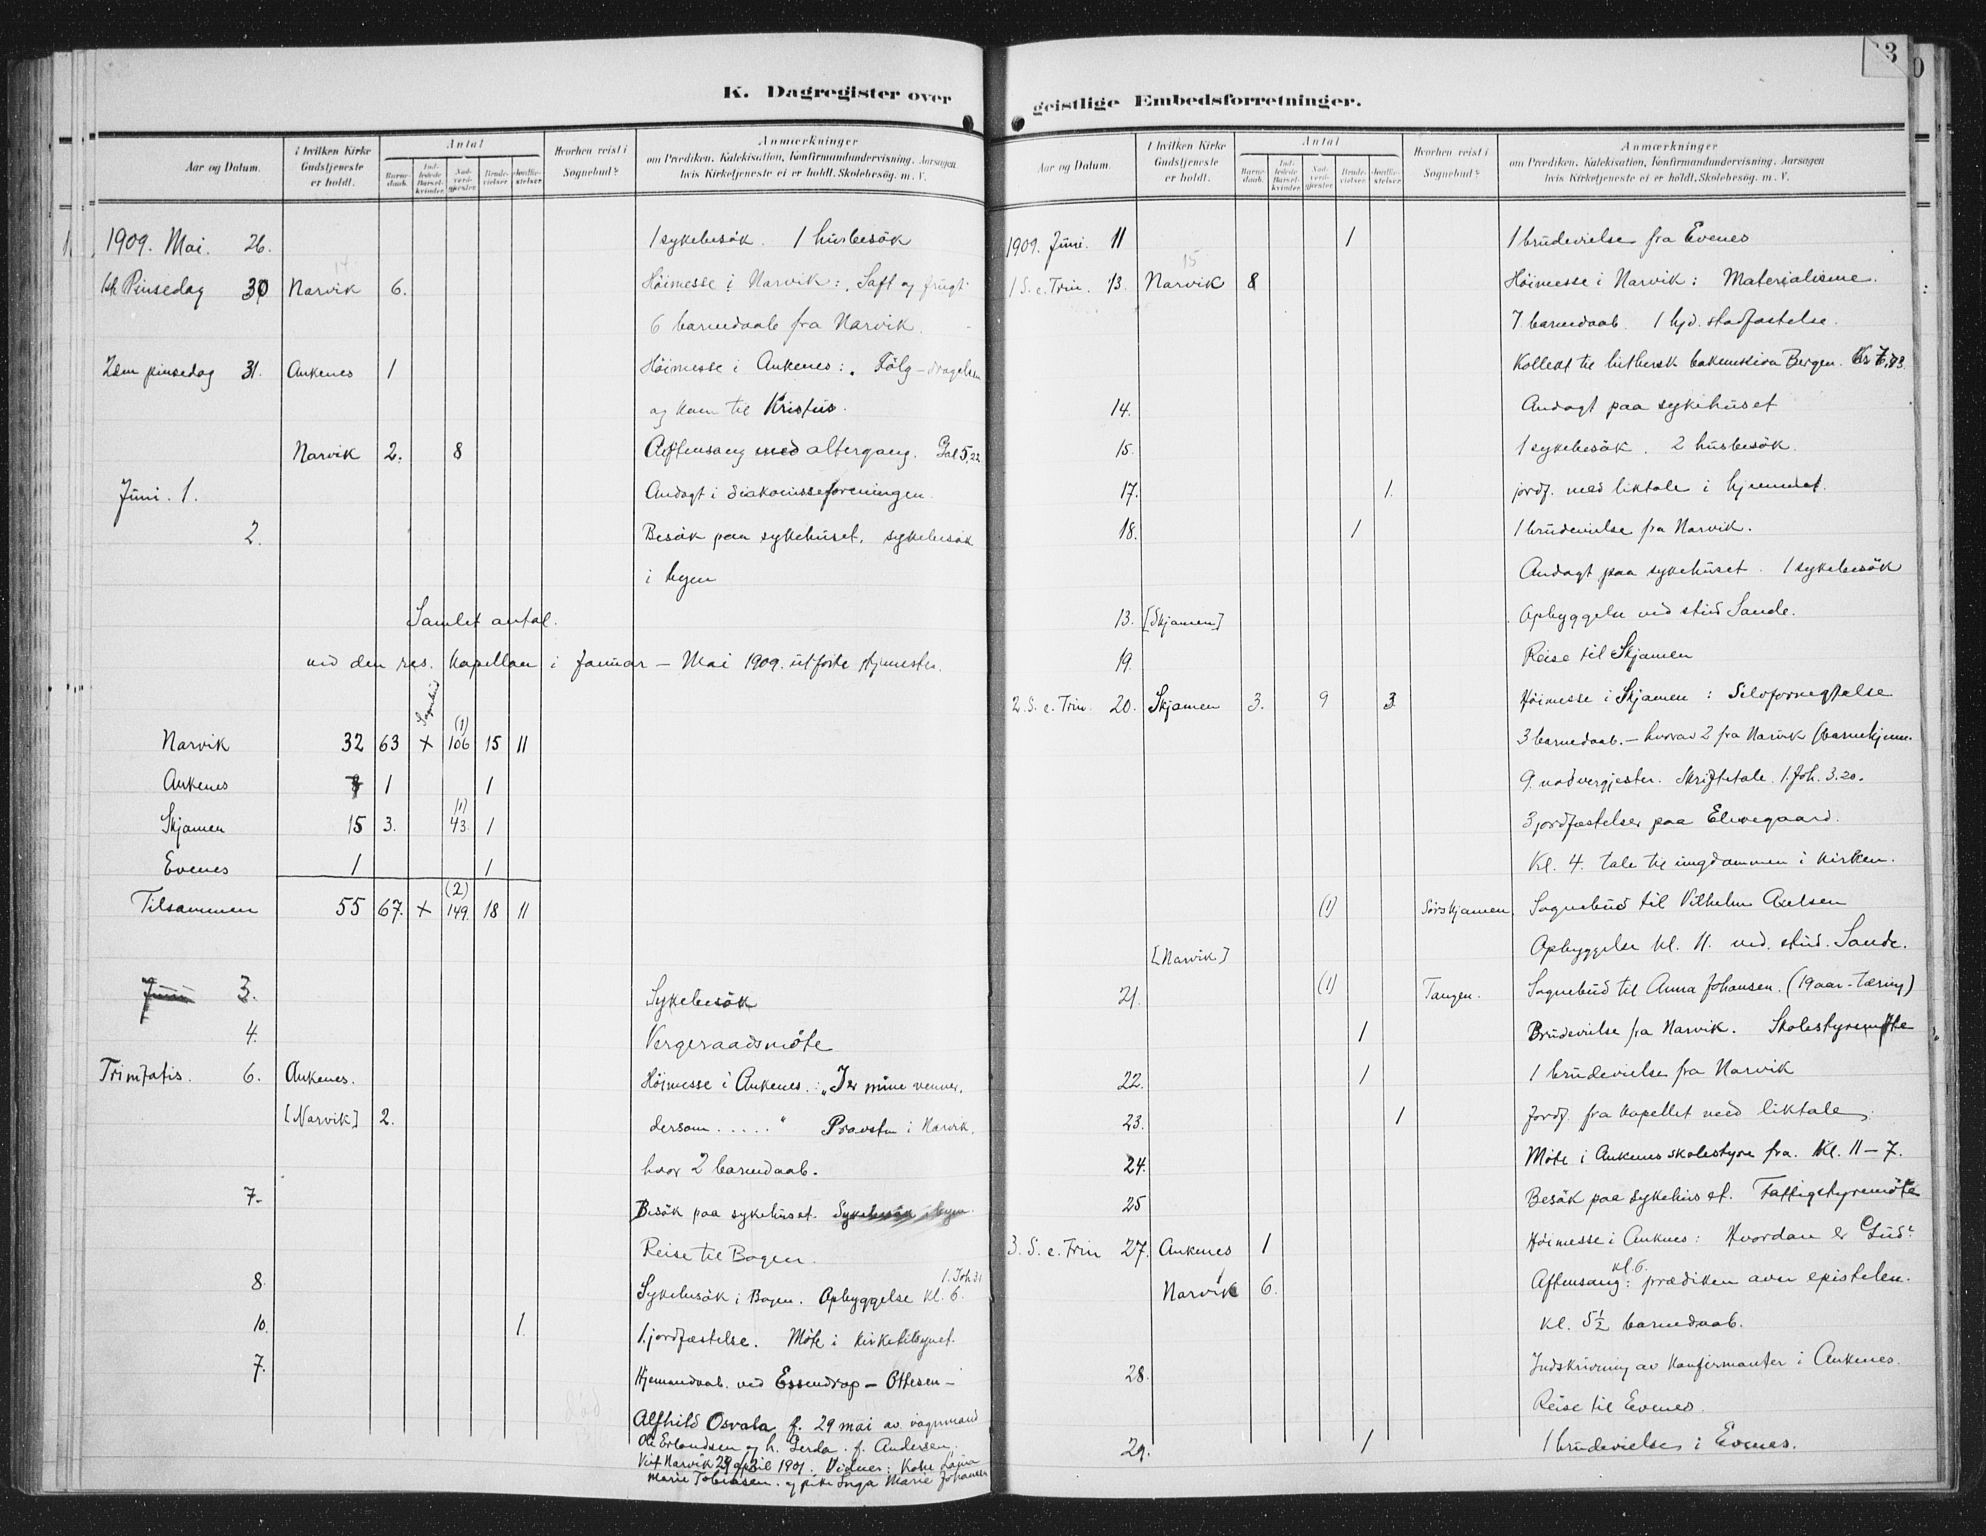 K. Dagregister over
Aar og Datum.
i hvilken Kirke Gudstjeneste er holdt.
Antal
Barnedaab.
Indledede Barselkvinder.
Nadverdgjester
Brudevielser
Jordfæstelser
Hvorhen reist i Sognebud?
Anmærkninger
om Prædiken, Katekisation, Konfirmandundervisning, Aarsagen
hvis Kirketjeneste ei er holdt, Skolebesøg. m. V.
1909. Mai. 26. 1 sykebesök. 1 husbesök
14
1ste Pinsedag 30 Narvik 6. Höimesse i Narvik: Saft og frugt
6 barnedaab fra Narvik.
2den pinsedag 31. Ankenes 1 Höimesse i Ankenes: Fölg
og kom til Kristus.
Narvik 2. 8 Aftensang med altergang. Gal 5.22
Juni. 1. Andagt i diakonisseforeningen.
2. Besök paa sykehuset. sykebesök
i byen
Samlet antal.
ved den res. kapellan i Januar – Mai 1909. utförte tjenester.
Sognebud
Narvik 32 63 + (1) 106 15 11
Ankenes 7 1 1
Skjomen 15 3. (1) 43 1
Evenes 1 1
Tilsammen 55 67. + (2) 149 18 11
Juni 3. Sykebesök
4. Vergeraadsmöte
Trinitatis. 6. Ankenes. Höimesse i Ankenes.: „I er mine venner,
[Narvik] 2. dersom ....." Provsten i Narvik.
hvor 2 barnedaab.
7. Besök paa sykehuset. Sykebesök i byen.
Reise til Bogen.
8. Sykebesök i Bogen. Opbyggelse kl. 6. 1. Joh 3.1
10. 1. 1 jordfæstelse. Möte i kirketilsynet.
7. Hjemmedaab ved Essendrop – Ottesen –
Alfhild Osvala f. 29 mai av vognmand
Ole Erlandsen og h. Gerda f. Andersen.
Viet Narvik april 1901. Vidner: Kone
Marie Tobiasen. og pike Inga Marie Johansen
geistlige Embedsforretninger.
3
Aar og Datum.
I hvilken Kirke Gudstjeneste er holdt.
Antal
Barnedaab.
Indledede Barselkvinder.
Nadverdgjester
Brudevielser
Jordfæstelser
Hvorhen reist i Sognebud?
Anmærkninger
om Prædiken, Katekisation, Konfirmandundervisning, Aarsagen
hvis Kirketjeneste ei er holdt, Skolebesøg. m. V.
1909. Juni. 11 1 1 brudevielse fra Evenes
15
1 S. e. Trin. 13. Narvik 8 Höimesse i Narvik: Materialisme.
7 barnedaab. 1 hjd. stadfæstelse.
Kollekt til luthersk Bergen. Kr 7,73.
14. Andagt paa sykehuset
15. 1 sykebesök. 2 husbesök.
17. 1. jordf. med liktale i hjemmet.
18. 1 1 brudevielse fra Narvik.
Andagt paa sykehuset. 1 sykebesök
13. [Skjomen] Opbyggelse ved stud Sande.
19. Reise til Skjomen
2. S. e. Trin. 20. Skjomen 3. 9 3 Höimesse i Skjomen: Selvfornegtelse
3 barnedaab. – hvorav 2 fra Narvik
9 nadvergjester. Skriftetale. 1. Joh. 3.20.
3 jordfæstelser paa Elvegaard.
Kl. 4. tale til ungdommen i kirken.
(1) Sörskjomen. Sognebud til Vilhelm Axelsen
[Narvik] Opbyggelse kl. 11. ved. stud. Sande.
21. (1) Tangen. Sognebud til Anna Johansen. (19 aar – tæring)
1 Brudevielse fra Narvik. Skolestyremöte
22. 1 1 brudevielse fra Narvik
23. 1 Jordf. fra kapellet med liktale.
24. Möte i Ankenes skolestyre fra. Kl. 11 – 7.
25 Besök paa sykehuset. Fattigstyremöte
3. S. e. Trin 27. Ankenes 1 Höimesse i Ankenes: Hvordan er Gud?
Narvik 6. Aftensang kl. 6.: prædiken over epistelen.
Kl. 5½ barnedaab.
28. Indskrivning av konfirmanter i Ankenes.
Reise til Evenes.
29. 1 1 brudevielse i Evenes.